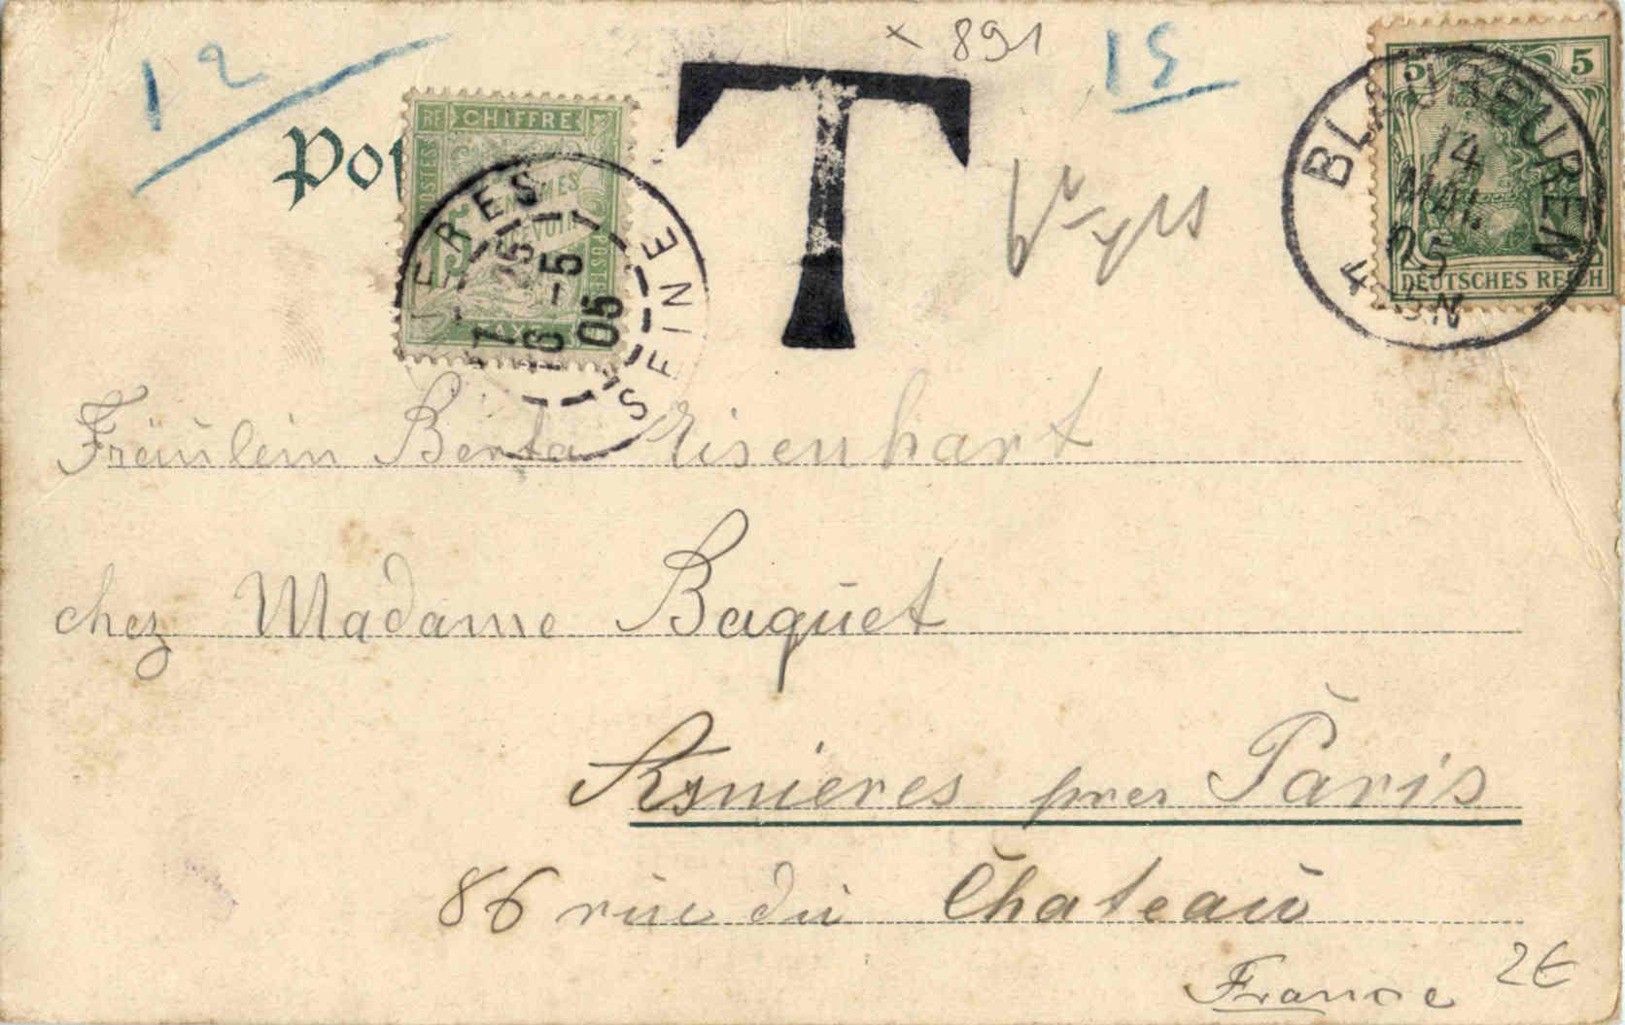 12
× 891
15
5 5
DEUTSCHES REICH
BLAUBEUREN
14
MAI.
05
4-5N
RF CHIFFRE
POSTES
TAXE
SEINE
25
16-5
05
T
Fräulein Berta Eisenhart
chez Madame Baquet
Asnieres pres Paris
86 rue du Chateau
France
2€